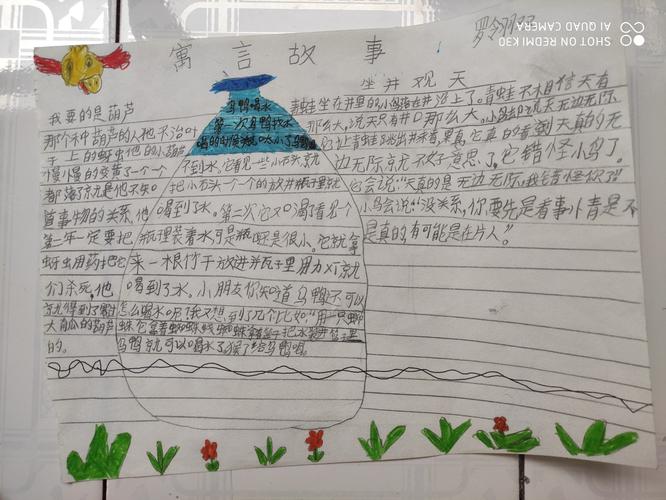 寓言故事
SHOT ON REDMI K30
AI QUAD CAMERA
我要的是葫芦
那个种葫芦的人他不治叶
子上的蚜虫他的小葫芦
慢小慢的变黄了一个一个
都落了京尤是他不知
道事物的关系。他
第二年一定要把
蚜虫用药把它
们杀死，他
京尤得到了
大南瓜的葫芦
的。
乌鸭喝水
第一次乌鸭找水
喝的时候
不到水。它看见一些小石京尤
把小石头一个一个的放井瓶子里京尤
喝到了水。第二次它又口渴了看见一个
瓶理装着水可是瓶口旺是很小。它就拿
来一根竹干放进井瓦子里用力
喝到了水。小朋友你知道乌鸭还可以
怎么喝水呢我又想到了几个比如“用一只
把水
乌鸭京尤可以喝水了
坐井观天
青蛙坐在井里的小鸟落在井沿上了青蛙不相信天有
那么大，说天只有井口那么大。小鸟却说天无边无际，
它让青蛙跳出井来看，果真，它真的看到天真的无
边无际京尤不好意思了。它错怪小鸟了。
它会说：“天真的是无边无际，我错怪你了”
小鸟会说：“没关系，你要先是看事小青是不
是真的，有可能是在片人。”